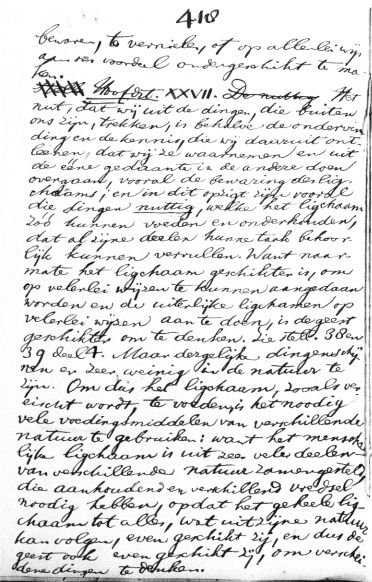 418
bewaren, te vernielen, of op allerlei wijs
aan ons voordeel ondergeschikt te ma-
ken.
Hoofdst. XXVII. De nuttig Het
nut, dat wij uit de dingen, die buiten
ons zijn, trekken, is behalve de ondervin
ding en de kennis, die wij daaruit ont-
leenen, dat wij ze waarnemen en uit
de eene gedaante in de andere doen
overgaan, vooral de bewaring des lig-
chaams; en in dit opzigt zijn vooral
die dingen nuttig, welke het ligchaam
zóó kunnen voeden en onderhouden,
dat al zijne deelen hunne taak behoor
lijk kunnen vervullen. Want naar
mate het ligchaam geschikter is, om
op velerlei wijzen te kunnen aangedaan
worden en de uiterlijke ligchamen op
velerlei wijzen aan te doen, is de geest
geschikter om te denken. Zie stell. 38 en
39 deel 4. Maar dergelijke dingen schij
nen er zeer weinig in de natuur te
zijn. Om dus het ligchaam, zooals ver
eischt wordt, te voeden, is het noodig
vele voedingsmiddelen van verschillende
natuur te gebruiken: want het mensche
lijke ligchaam is uit zeer vele deelen
van verschillende natuur zamengesteld,
die aanhoudend en verschillend voedsel
noodig hebben, opdat het geheele lig-
chaam tot alles, wat uit zijne natuur
kan volgen, even geschikt zij, en dus de
geest ook even geschikt zij, om verschei
dene dingen te denken.